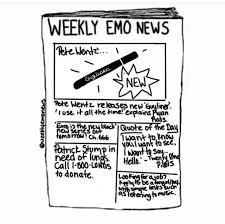 WEEKLY EMO NEWS
Pete Wentz...
Guyliner
NEW
Pete Wentz releases new 'Guyliner'.
'I use it all the time!' explains Ryan
Ross.
'Emo is the new black'
new series out
tomorrow! Ch.666
Patrick Stump in
need of lungs.
Call 1-800-LUNGS
to donate.
Quote of the Day
I want to know
you, I want to see,
I want to say
Hello. - Twenty One
Pilots
Looking for a job?
Apply to be a
with simple tasks such
as listening to music.
@weeklyemonews